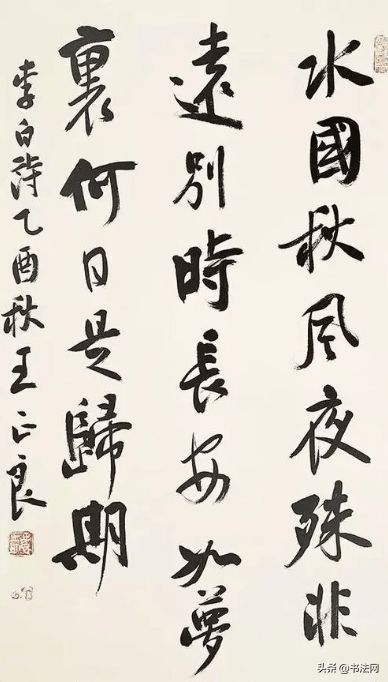 水國秋風夜殊非
遠別時長安如夢
裏何日是歸期
李白詩乙酉秋王正良
头条@书法网